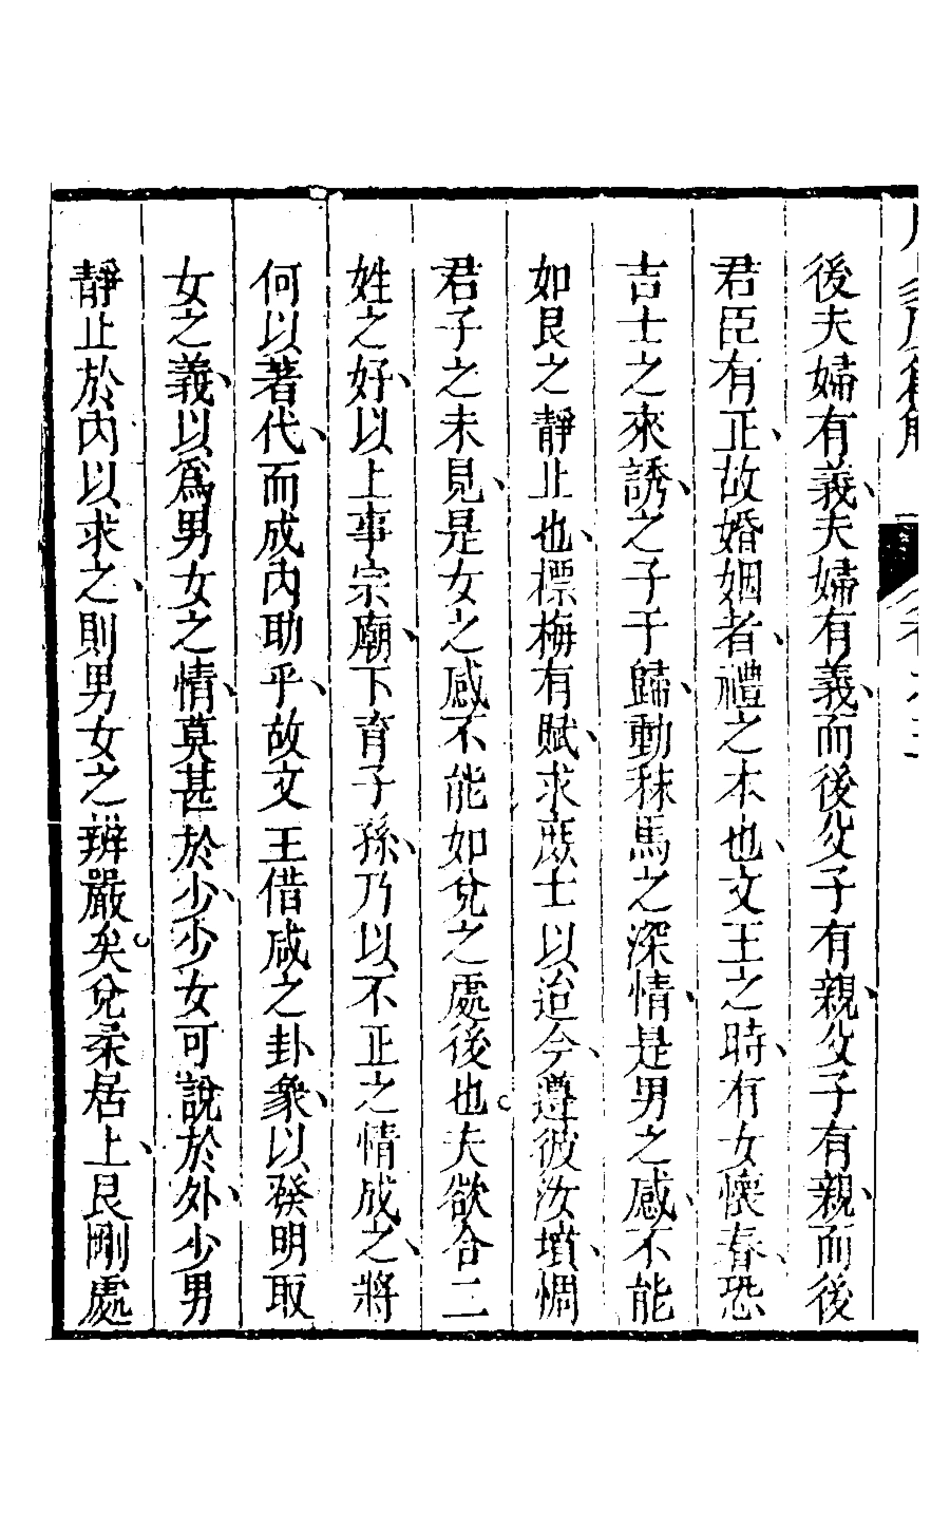 後夫婦有義、夫婦有義、而後父子有親、父子有親、而後
君臣有正、故婚姻者、禮之本也、文王之時、有女懷春、恐
吉士之來誘、之子于歸、動秣馬之深情、是男之感、不能
如艮之靜止也、標梅有賦、求庶士以迨今、遵彼汝墳、惆
君子之未見、是女之感不能如兌之處後也。夫欲合二
姓之好、以上事宗廟、下育子孫、乃以不正之情成之、將
何以著代、而成內助乎、故文王借咸之卦象、以發明取
女之義、以爲男女之情、莫甚於少、少女可說於外、少男
靜止於內以求之、則男女之辨嚴矣。兌柔居上、艮剛處